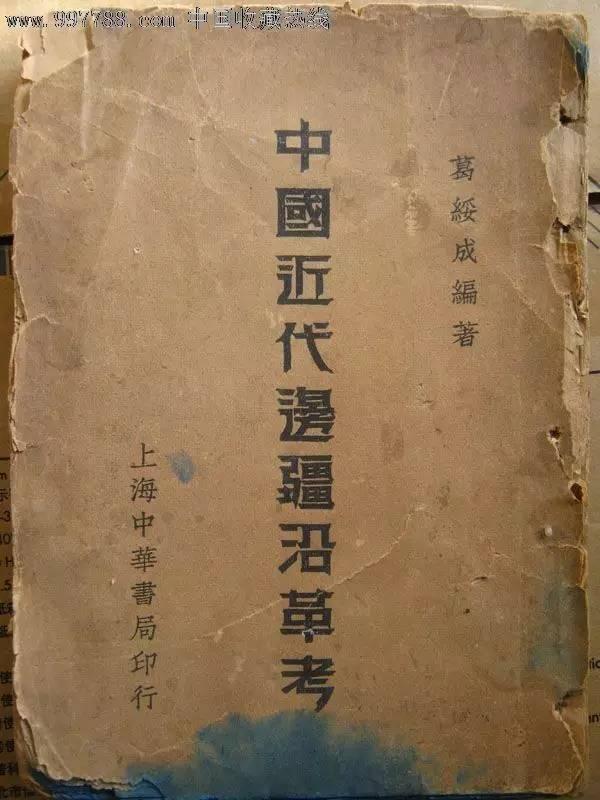 www.997788.com 中国收藏热线
葛綏成編著
中國近代邊疆沿革考
上海中華書局印行